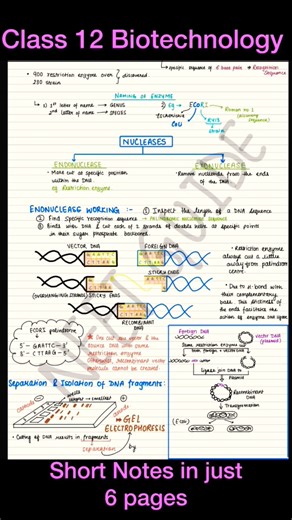 Class 12 Biotechnology
↳ specific sequence of 6 base pair → Recognition sequence
• 900 restriction enzyme over discovered.
230 strain
NAMING OF ENZYME
↳ 1) 1st letter of name → GENUS
2nd letter of name → SPECIES
2) Eg → ECORI
Escherichia
Coli
RY13
strain
NUCLEASES
ENDONUCLEASE
• Make cut at specific position
within the DNA.
eg Restriction enzyme.
EXONUCLEASE
• Remove nucleotide from the ends
of the DNA.
ENDONUCLEASE WORKING :-
① Inspect the length of a DNA sequence
② Find specific recognition sequence → Palindromic nucleotide sequence
③ Binds with DNA & cut each of 2 strands of double helix at specific points
in their sugar phosphate backbones.
VECTOR DNA
FOREIGN DNA
STICKY ENDS
(OVERHANGING STRANDS) STICKY ENDS
RECOMBINANT
DNA
• Restriction enzyme
always cut a little
away from palindrom
centre.
• Due to H-bond with
their complementary
base this stickiness of
the ends facilitate the
action of enzyme DNA ligase
ECORI palindrome
5' — GAATTC — 3'
3' — CTTAAG — 5'
★ One cut the vector & the
source DNA with same
restriction enzyme
otherwise, recombinant vector
molecule cannot be created
Foreign DNA
vector DNA
(plasmid)
Same restriction enzymes
Ligase join DNA to
Plasmid
Recombinant
DNA
Transformation
(E.coli)
Separation & Isolation of DNA fragments:
GEL
ELECTROPHORESIS
• Cutting of DNA results in fragments
separation
by
NEET GUIDE
Short Notes in just
6 pages